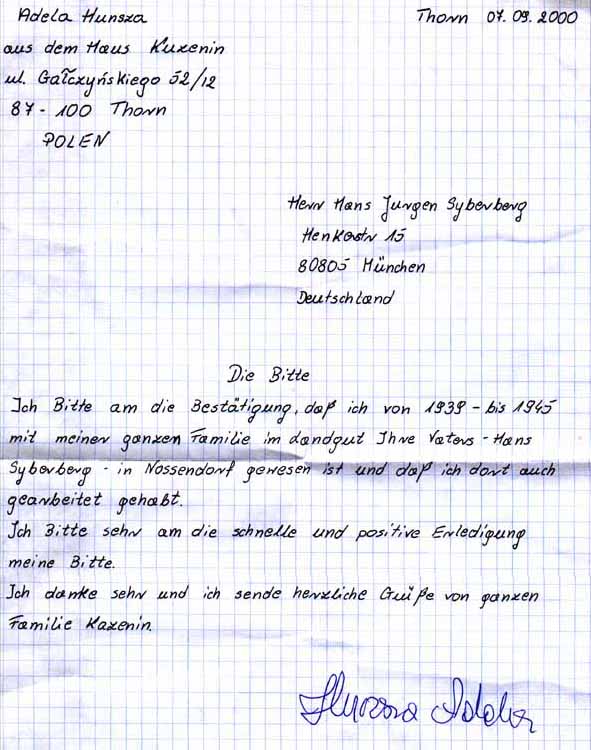 Adela Hursza
Thorn 07.09.2000
aus dem Haus Kuzenin
ul. Gałczyńskiego 52/12
87-100 Thorn
POLEN
Herr Hans Jurgen Syberberg
15
80805 München
Deutschland
Die Bitte
Ich Bitte am die Bestätigung, daß ich von 1939 - bis 1945
mit meiner ganzen Familie im Landgut Ihre Vaters - Hans
Syberberg - in Nossendorf gewesen ist und daß ich dort auch
gearbeitet gehabt.
Ich Bitte sehr am die schnelle und positive Erledigung
meine Bitte.
Ich danke sehr und ich sende herzliche Grüße von ganzen
Familie Kazenin.
Hursza Adela